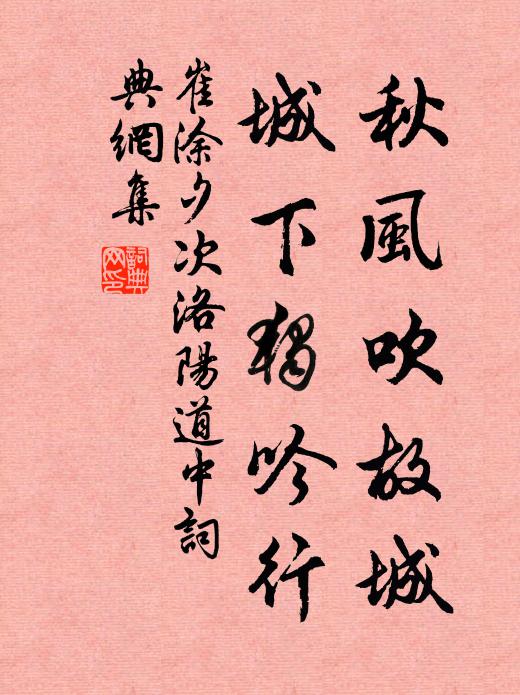 秋風吹故城
城下獨吟行
崔涂夕次洛陽道中詞
典網集
詞典网印